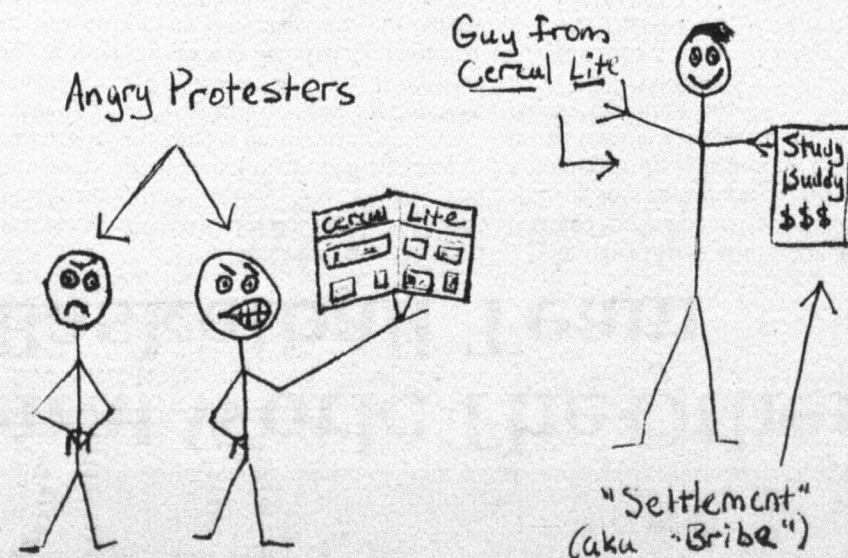 Angry Protesters
Guy from
Cereal Lite
Cereal Lite
Study
Buddy
$$$
"Settlement"
(aka "Bribe")